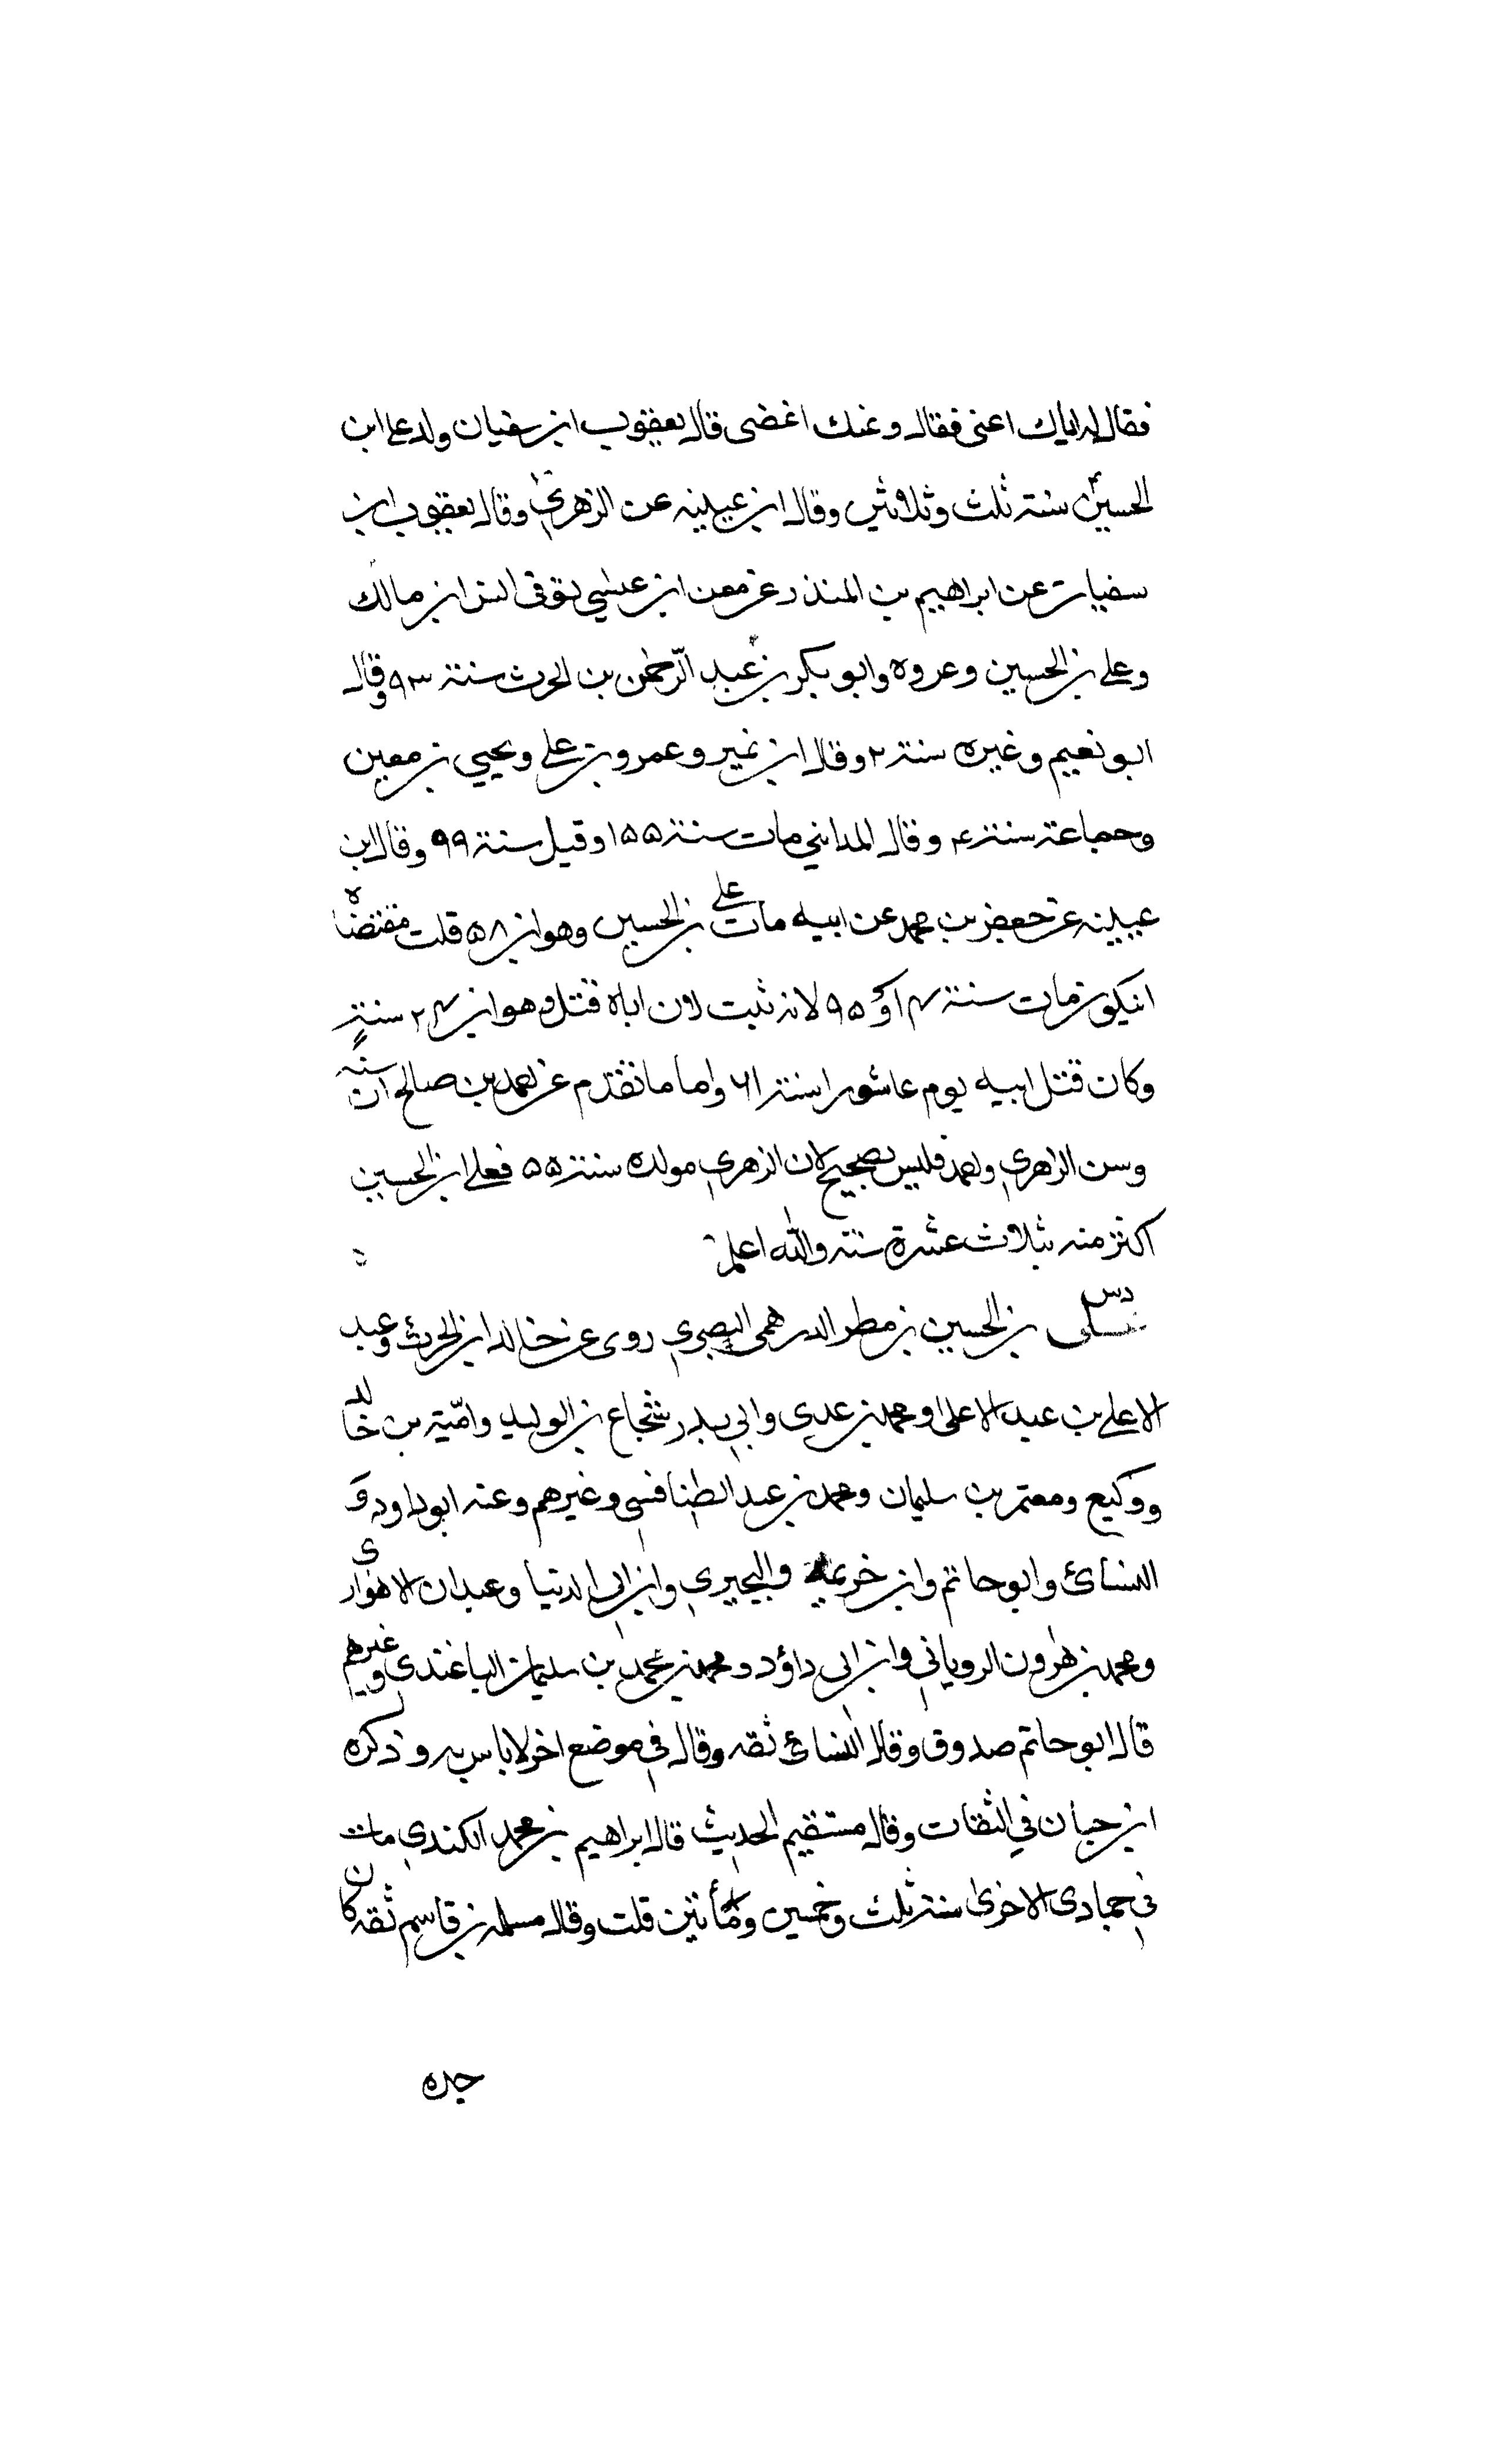 فقال له اياك اعنى فقال وعنك اغضى قال يعقوب ابن سفيان ولد على ابن
الحسين سنة ثلث وثلاثين وقال ابن عيينه عن الزهري وقال يعقوب ابن
سفيان عن ابراهيم بن المنذر عن معن ابن عيسي توفى انس ابن مالك
وعلى بن الحسين وعروه وابو بكر بن عبد الرّحمن بن الحرث سنة ۹۳ وقال
ابو نعيم وغيره سنة ۲ وقال ابن نمير وعمرو بن على ويحيي بن معين
وجماعة سنة ۴ وقال المدايني مات سنة ۱۵۵ وقيل سنة ۹۹ وقال ابن
عيينه عن جعفر بن محمد عن ابيه مات على بن الحسين وهو ابن ۵۸ قلت مقتضاه
انيكون مات سنة ۴ او ۹۵ لانه ثبت ان اباه قتل وهو ابن ۲۳ سنةٍ
وكان قتل ابيه يوم عاشورا سنة ۶۱ واما ما تقدم عن احمد بن صالح ان سنه
وسن الزهري واحد فليس بصحيح لان الزهري مولده سنة ۵۵ فعلى ابن الحسين
اكثر منه بثلاث عشرة سنة والله اعلم
دس
على بن الحسين بن مطر الدرهمى البصري روى عن خالد ابن الحرث وعبد
الاعلى بن عبد الاعلى ومحمد بن عدى وابي بدر شجاع بن الوليد واميّة بن خالد
ووكيع ومعتمر بن سليمان ومحمد بن عبد الطنافسى وغيرهم وعنه ابو داود و
النسائ وابو حاتم وابن خزيمة والبجيري وابن ابى الدنيا وعبدان الاهوازى
ومحمد بن هرون الروياني وابن ابى داؤد ومحمد بن محمد بن سليمان الباغندي وغيرهم
قال ابو حاتم صدوق وقال النسائى ثقه وقال في موضع اخر لا باس به وذكره
ابن حبان في الثقات وقال مستقيم الحديث قال ابراهيم بن محمد الكندي مات
في جمادى الاخرى سنة ثلث وخمسين ومأتين قلت وقال مسلمه بن قاسم ثقه كان
جده